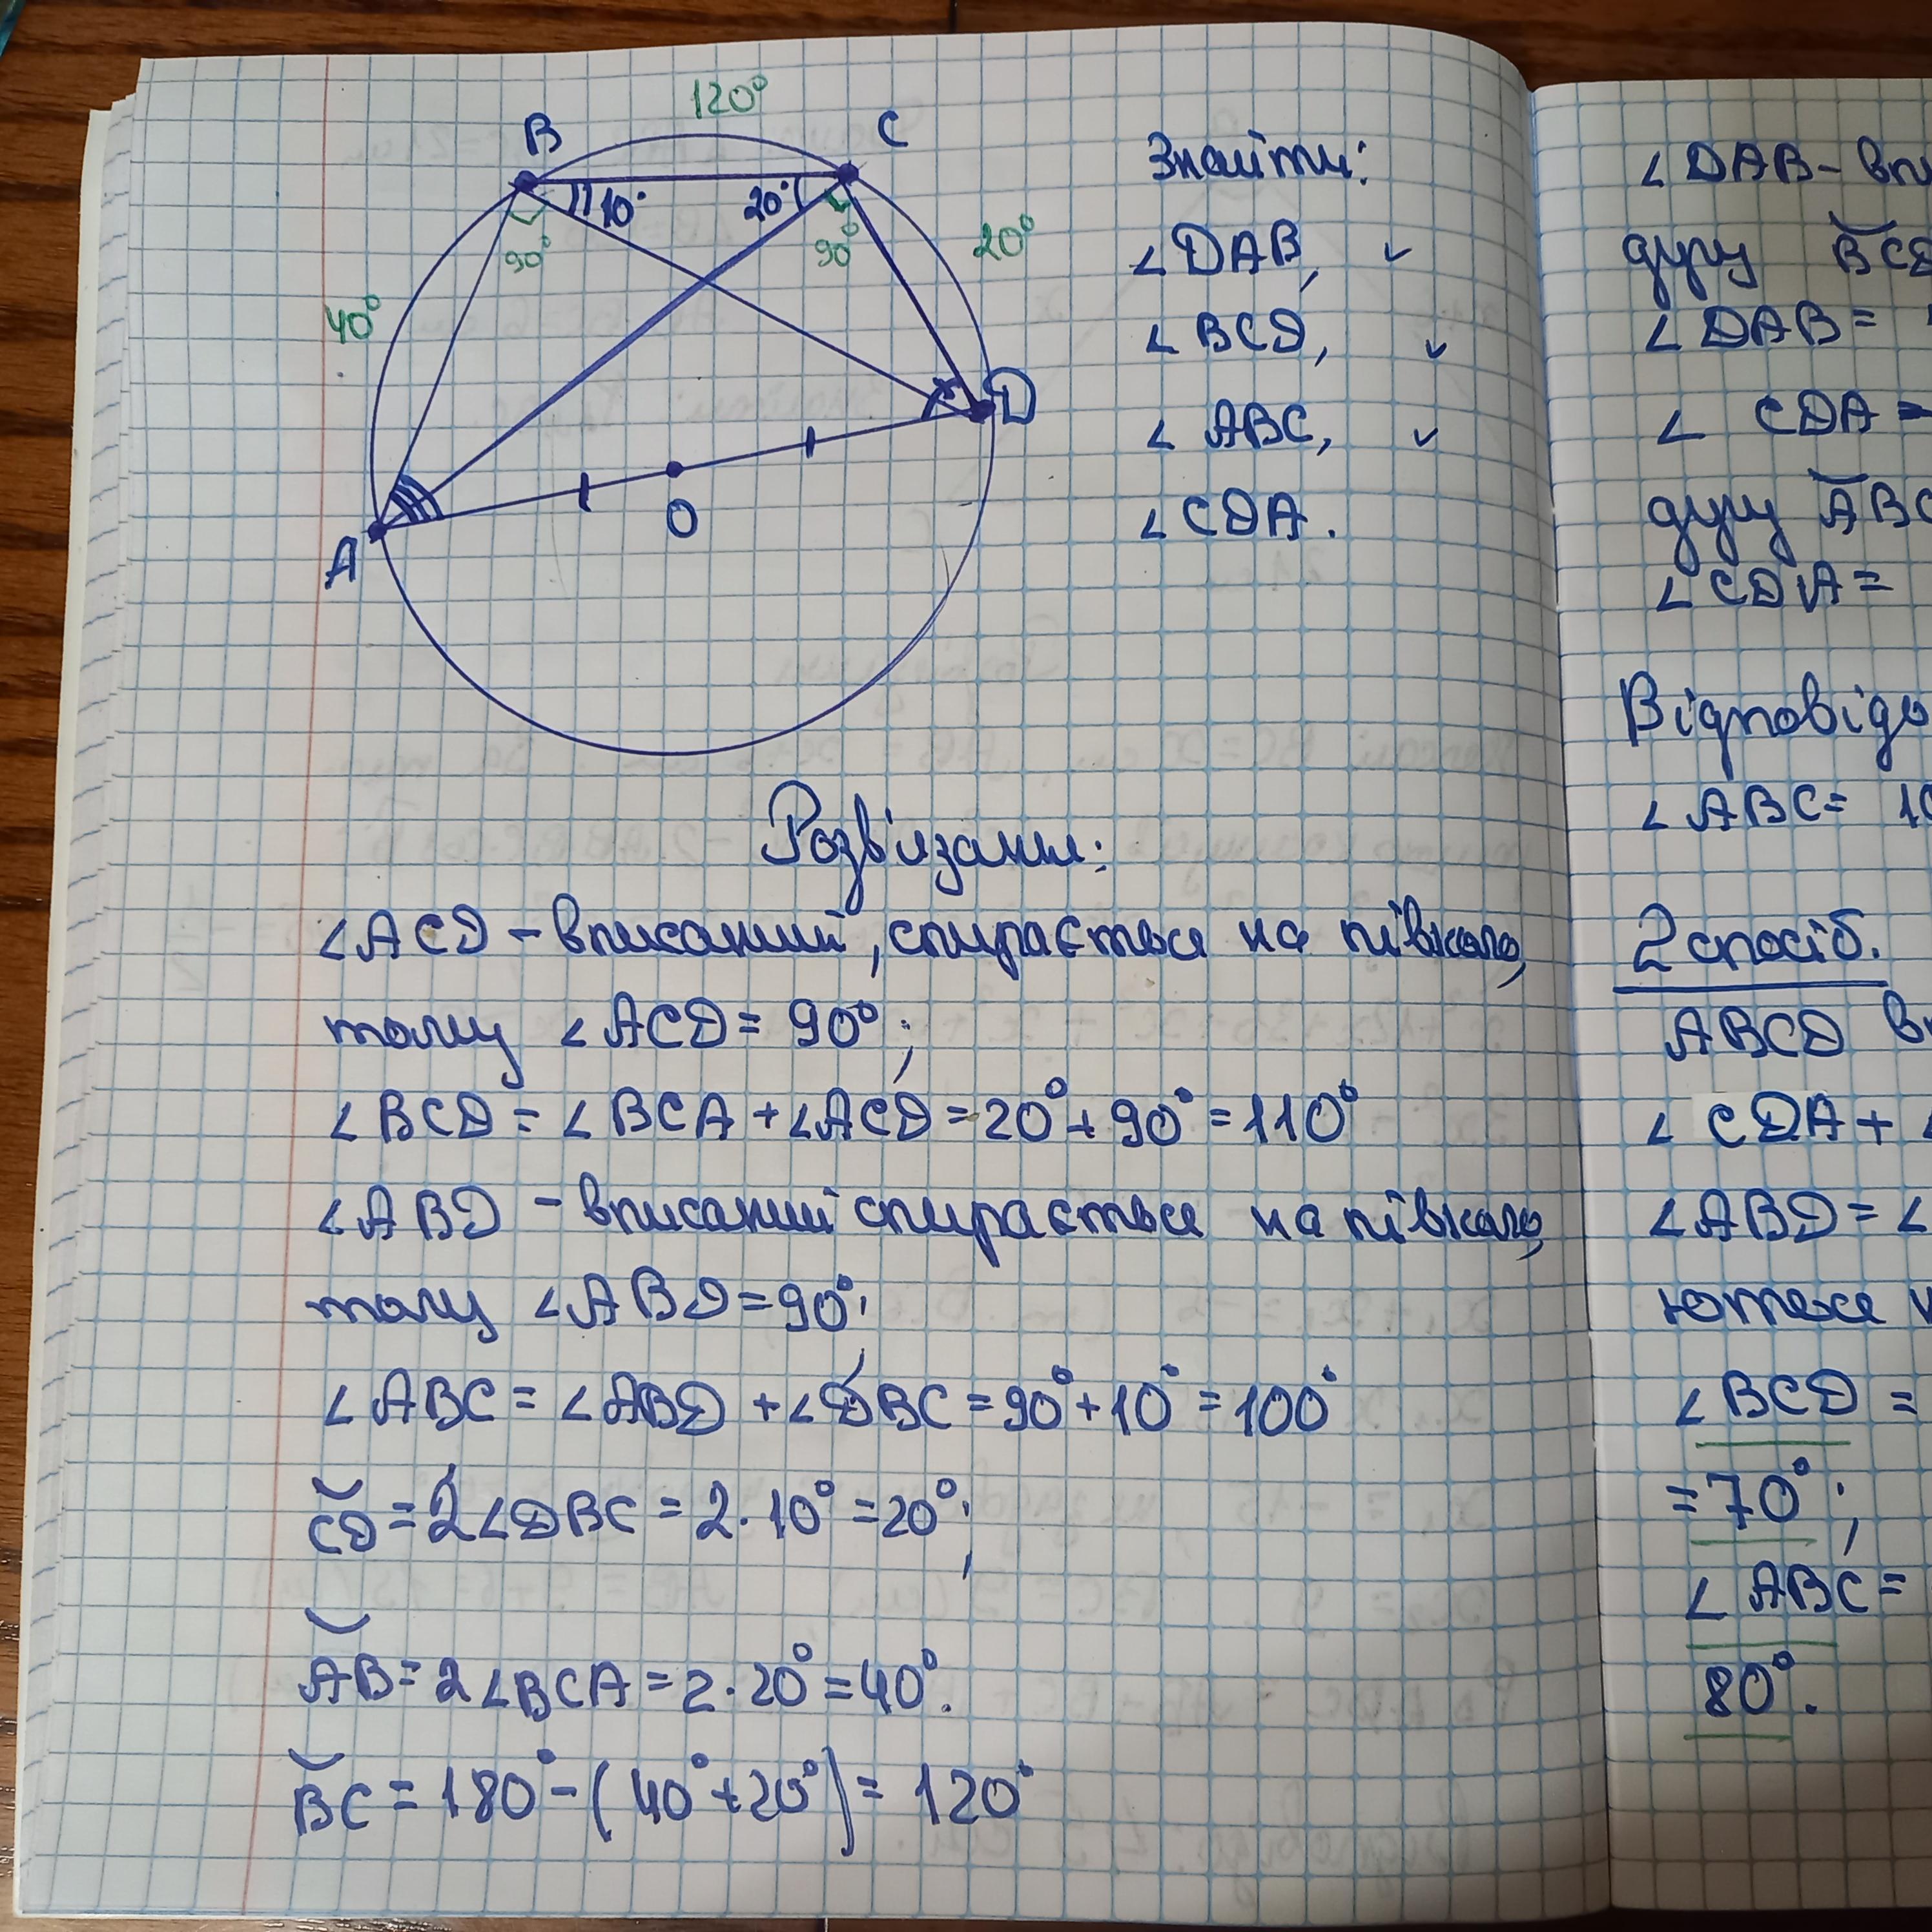 120°
B
C
10°
20°
90°
90°
20°
40°
D
O
A
Знайти:
∠DAB, ✓
∠BCD, ✓
∠ABC, ✓
∠CDA.
Розв'язання:
∠ACD – вписаний, спирається на півколо,
тому ∠ACD = 90°;
∠BCD = ∠BCA + ∠ACD = 20° + 90° = 110°
∠ABD – вписаний спирається на півколо,
тому ∠ABD = 90°;
∠ABC = ∠ABD + ∠DBC = 90° + 10° = 100°
CD = 2∠DBC = 2·10° = 20°;
AB = 2∠BCA = 2·20° = 40°.
BC = 180° – (40° + 20°) = 120°
∠DAB – впи
дугу BCD
∠DAB =
∠ CDA =
дугу ABC
∠CDA =
Відповідь
∠ABC = 10
2 спосіб.
ABCD вп
∠ CDA + ∠
∠ABD = ∠
ються
∠BCD =
= 70°;
∠ ABC =
80°.